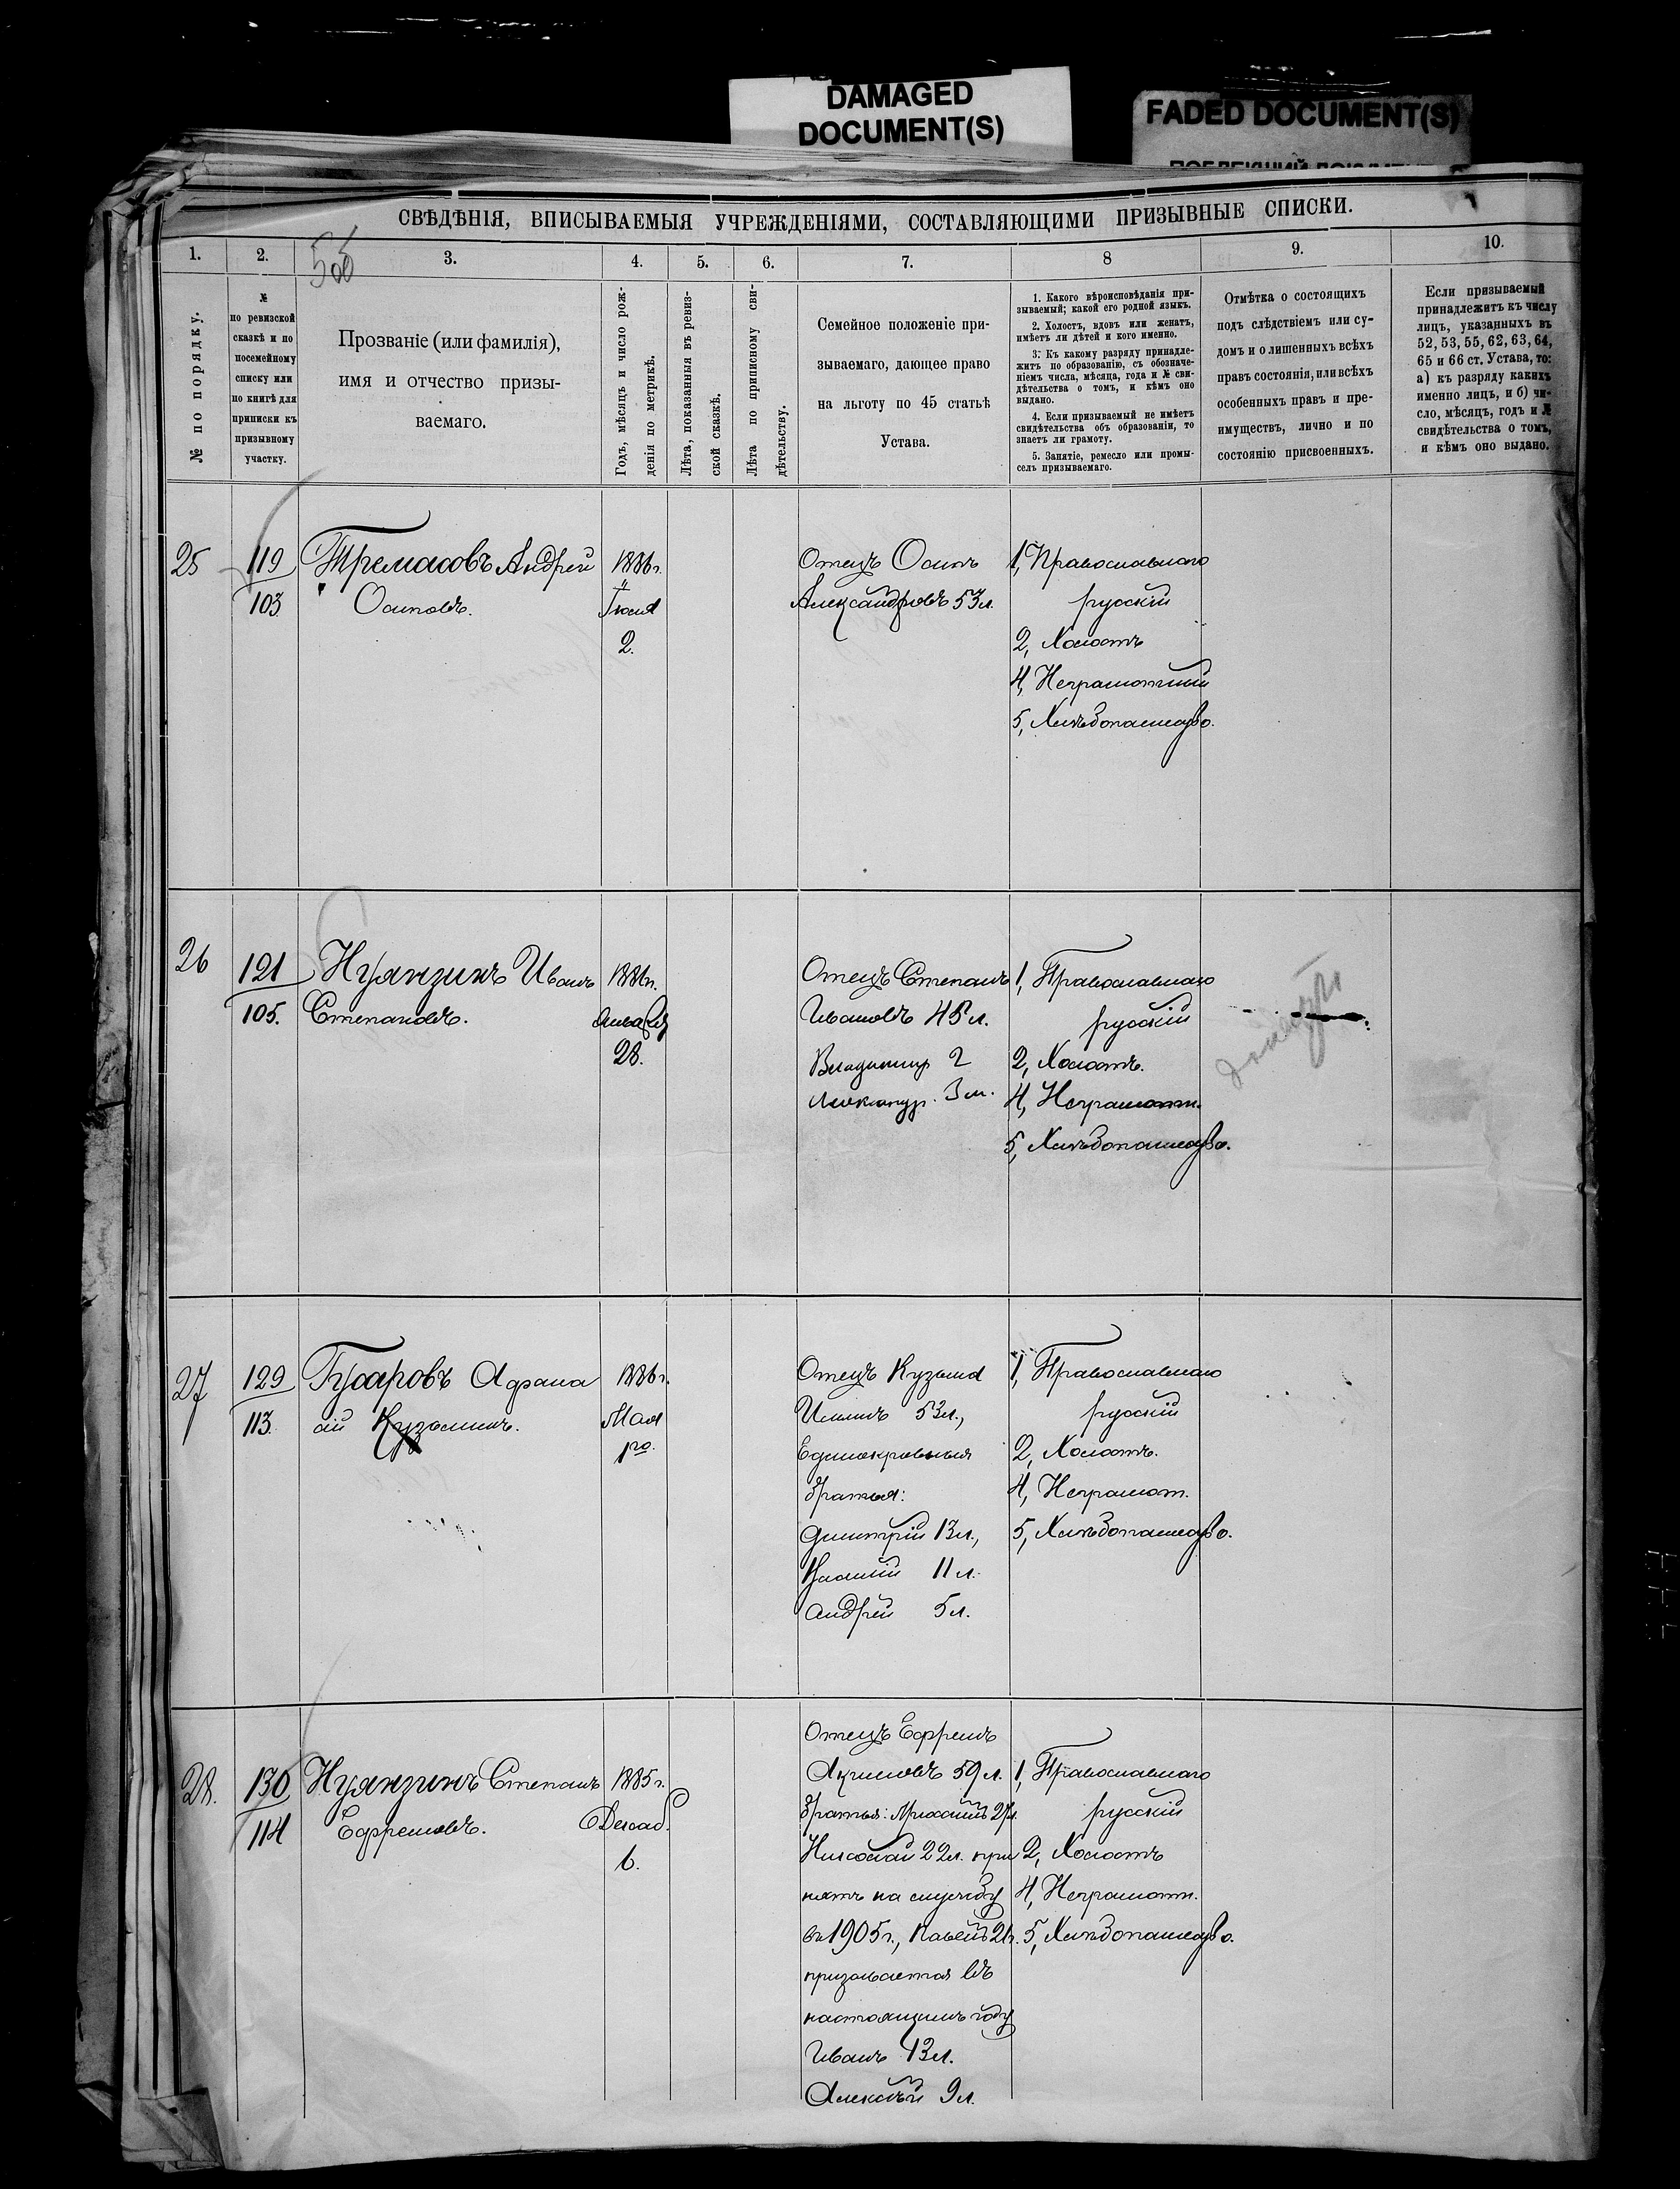 DAMAGED
DOCUMENT(S)
FADED DOCUMENT(S)
СВѢДѢНІЯ, ВПИСЫВАЕМЫЯ УЧРЕЖДЕНІЯМИ, СОСТАВЛЯЮЩИМИ ПРИЗЫВНЫЕ СПИСКИ.
1.
2.
3.
4.
5.
6.
7.
8
9.
10.
№ по порядку.
№
по ревизской
сказкѣ и по
посемейному
списку или
по книгѣ для
приписки къ
призывному
участку.
Прозваніе (или фамилія),
имя и отчество призы-
ваемаго.
Годъ, мѣсяцъ и число рож-
денія по метрикѣ.
Лѣта, показанныя въ ревиз-
ской сказкѣ.
Лѣта по приписному сви-
дѣтельству.
Семейное положеніе при-
зываемаго, дающее право
на льготу по 45 статьѣ
Устава.
1. Какого вѣроисповѣданія при-
зываемый; какой его родной языкъ.
2. Холостъ, вдовъ или женатъ,
имѣетъ ли дѣтей и кого именно.
3. Къ какому разряду принадле-
житъ по образованію, съ обозначе-
ніемъ числа, мѣсяца, года и № сви-
дѣтельства о томъ, и кѣмъ оно
выдано.
4. Если призываемый не имѣетъ
свидѣтельства объ образованіи, то
знаетъ ли грамоту.
5. Занятіе, ремесло или промы-
селъ призываемаго.
Отмѣтка о состоящихъ
подъ слѣдствіемъ или су-
домъ и о лишенныхъ всѣхъ
правъ состоянія, или всѣхъ
особенныхъ правъ и пре-
имуществъ, лично и по
состоянію присвоенныхъ.
Если призываемый
принадлежитъ къ числу
лицъ, указанныхъ въ
52, 53, 55, 62, 63, 64,
65 и 66 ст. Устава, то:
а) къ разряду какихъ
именно лицъ, и б) чи-
сло, мѣсяцъ, годъ и №
свидѣтельства о томъ,
и кѣмъ оно выдано.
25
119
103
Тремасовъ Андрей
Осиповъ.
1886г.
Іюня
2.
Отецъ Осипъ
Александровъ 53л.
1, Православнаго
русскій
2, Холостъ
4, Неграмотный
5, Хлѣбопашество.
26
121
105.
Нуянзинъ Иванъ
Степановъ.
1886г.
Января
28.
Отецъ Степанъ
Ивановъ 45л.
Владимир 2
Александр. 3 м.
1, Православнаго
русскій
2, Холостъ.
4, Неграмотн.
5, Хлѣбопашество.
27
129
113.
Гусаровъ Афана
сій Кузьминъ.
1886г.
Мая
1го.
Отецъ Кузьма
Ильинъ 53л.,
Единокровныя
братья:
Димитрій 13л.,
11л.
Андрей 5л.
1, Православнаго
русскій
2, Холостъ.
4, Неграмот.
5, Хлѣбопашество.
28.
130
114
Нуянзинъ Степанъ
Ефремовъ.
1885г.
Декаб.
6.
Отецъ Ефремъ
Акимовъ 59л.
братья: Михаилъ 27л.
Николай 22л. при
нятъ на службу
въ 1905г., Павелъ 21г.
призывается въ
настоящемъ году
Иванъ 13л.
Алексѣй 9л.
1, Православнаго
русскій
2, Холостъ
4, Неграмотн.
5, Хлѣбопашество.